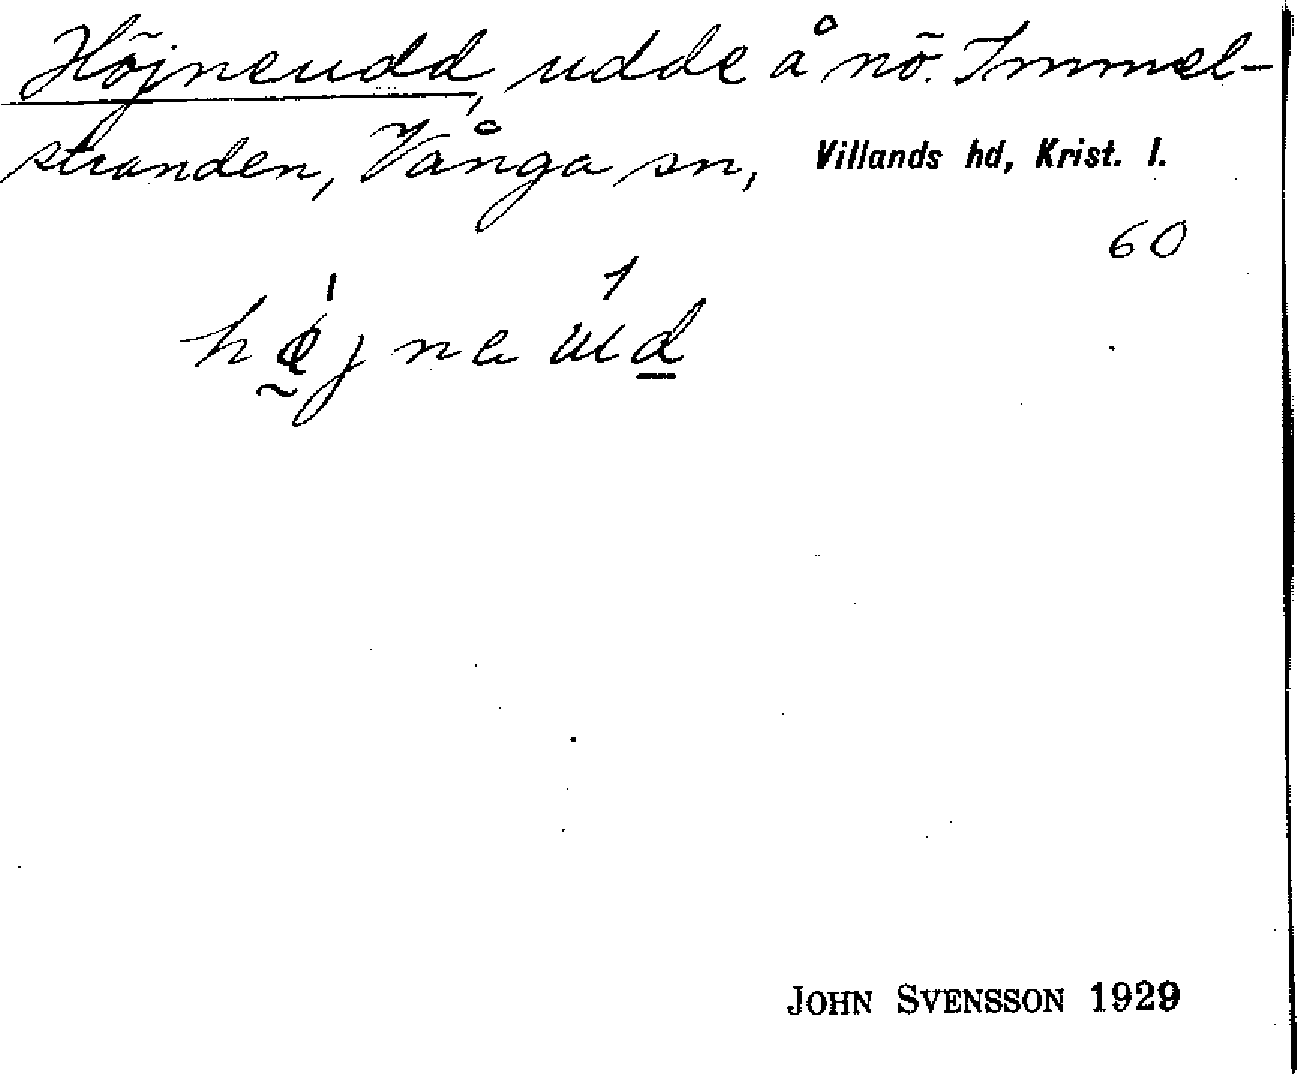 Höjneudd, udde å nö. Immel-
stranden, Vånga sn, Villands hd, Krist. l.
60
JOHN SVENSSON 1929